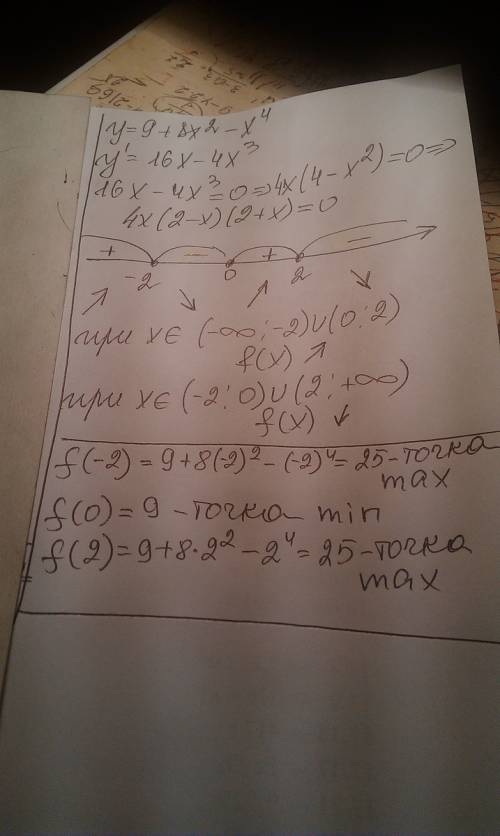 y = 9 + 8x² - x⁴
y' = 16x - 4x³
16x - 4x³ = 0 ⇒ 4x(4 - x²) = 0 ⇒
4x(2-x)(2+x) = 0
+ - + -
-2 0 2
↗ ↘ ↗ ↘
при x ∈ (-∞; -2) ∪ (0; 2)
f(x) ↗
при x ∈ (-2; 0) ∪ (2; +∞)
f(x) ↓
f(-2) = 9 + 8(-2)² - (-2)⁴ = 25 - точка
max
f(0) = 9 - точка min
f(2) = 9 + 8·2² - 2⁴ = 25 - точка
max